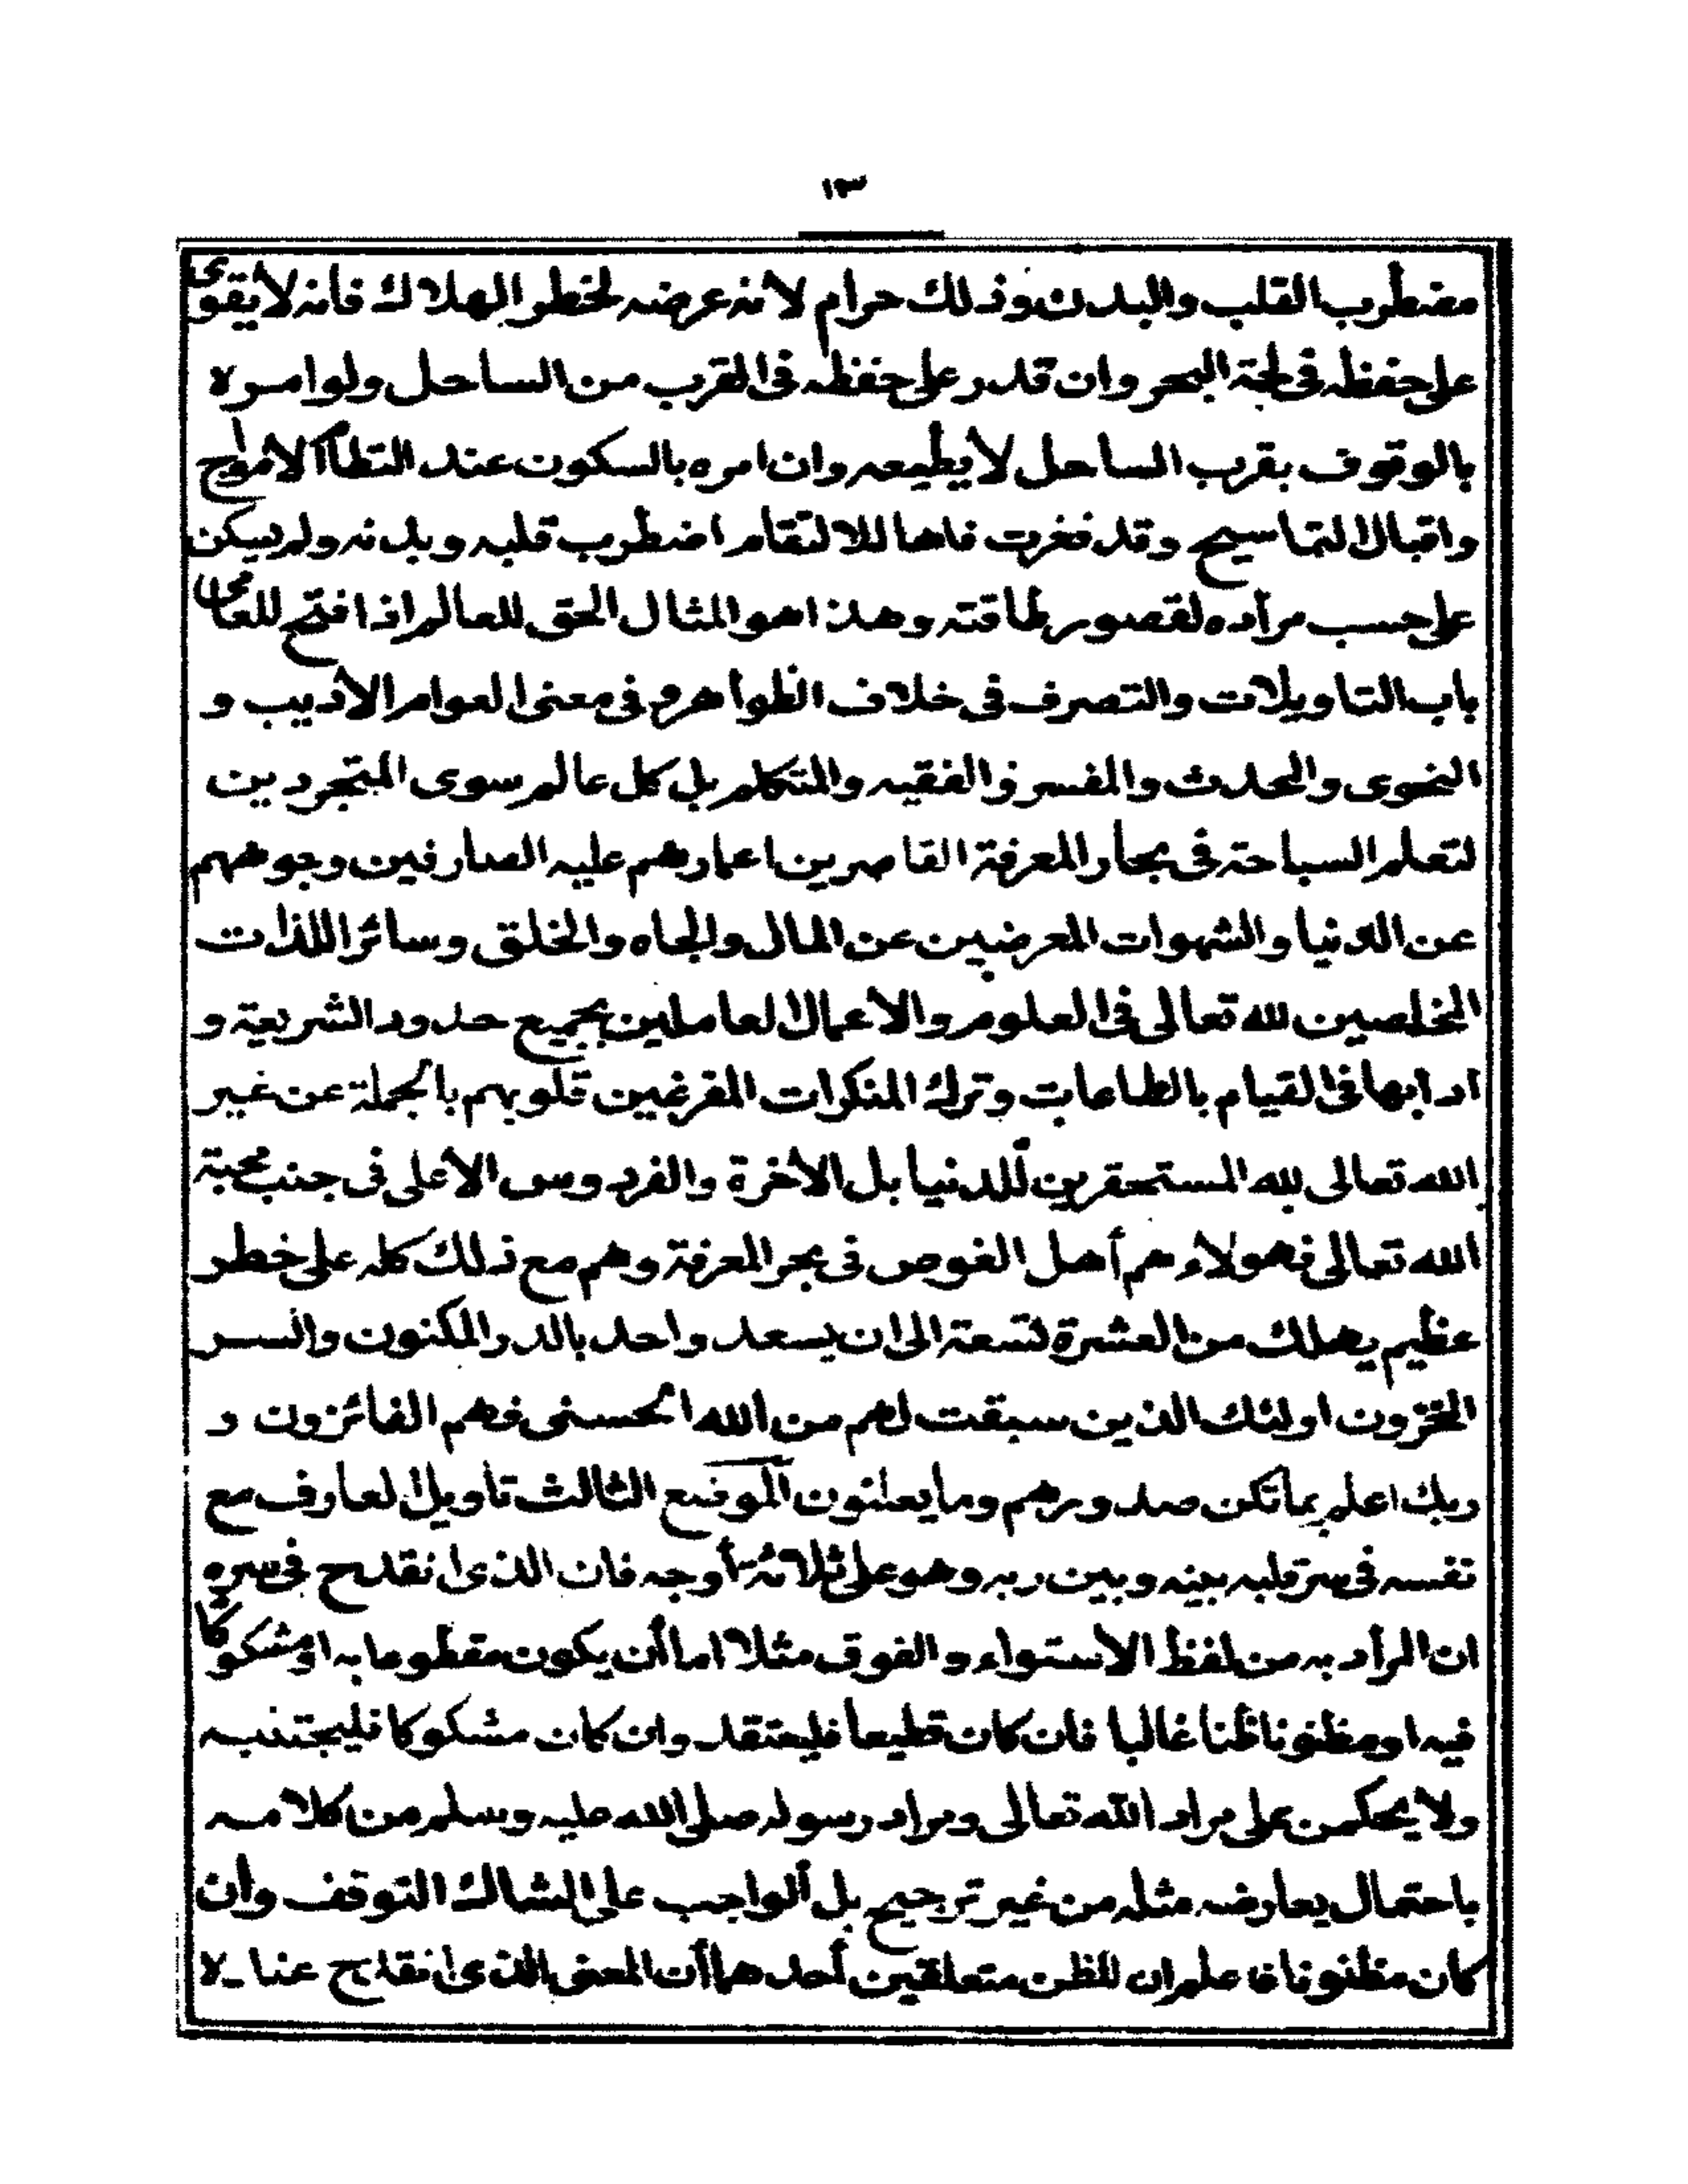 ١٣
مضطرب القلب والبدن وذلك حرام لأنه عرضه لخطر الهلاك فأنه لايقوى
على حفظه فى لجة البحر وان قدر على حفظه فى القرب من الساحل ولوامره
بالوقوف بقرب الساحل لايطيعه وان امره بالسكون عند التطام الامواج
واقبال التماسيح وقد فغرت فاها للالتقام اضطرب قلبه وبدنه ولم يسكن
على حسب مراده لقصور طاقته وهذا هو المثال الحق للعالم اذا فتح للعامى
باب التاويلات والتصرف فى خلاف الظواهر وفى معنى العوام الاديب و
النحوى والمحدث والمفسر والفقيه والمتكلم بل كل عالم سوى المتجردين
لتعلم السباحة فى بحار المعرفة القاصرين اعمارهم عليه الصارفين وجوههم
عن الدنيا والشهوات المعرضين عن المال والجاه والخلق وسائر اللذات
المخلصين لله تعالى فى العلوم والاعمال العاملين بجميع حدود الشريعة و
ادابها فى القيام بالطاعات وترك المنكرات المفرغين قلوبهم بالجملة عن غير
الله تعالى لله المستحقرين للدنيا بل الأخرة والفردوس الأعلى فى جنب محبة
الله تعالى فهولاء هم أهل الغوص فى بحر المعرفة وهم مع ذلك كله على خطر
عظيم يهلك من العشرة تسعة الى ان يسعد واحد بالدر المكنون والسر
المخزون اولئك الذين سبقت لهم من الله الحسنى فهم الفائزون و
ربك اعلم بما تكن صدورهم وما يعلنون الموضع الثالث تأويل العارف مع
نفسه فى سر قلبه بينه وبين ربه وهو على ثلاثة أوجه فان الذى انقدح فى سره
ان المراد به من لفظ الأستواء والفوق مثلا اما أن يكون مقطوعا به او مشكوكا
فيه او مظنونا ظنا غالبا فان كان قطيعا فليعتقد وان كان مشكوكا فليجتنبه
ولا يحكمن على مراد الله تعالى ومراد رسوله صلى الله عليه وسلم من كلامه
باحتمال يعارضه مثله من غير ترجيح بل ألواجب على الشاك التوقف وأن
كان مظنونا فاعلم ان للظن متعلقين أحدهما أن المعنى الذى انقدح عنا لا